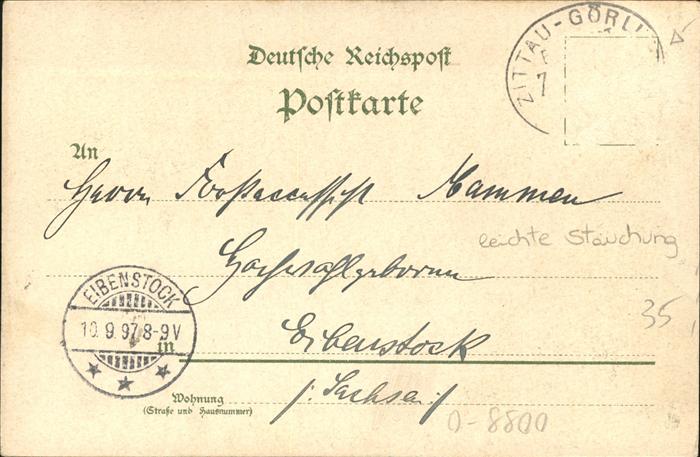 ZITTAU-GÖRLI
7
Deutsche Reichspost
Postkarte
An
Herrn Forstaccessist Mammen
leichte Stauchung
Hochwohlgeboren
35
EIBENSTOCK
10.9.97.8-9V
in
Eibenstock
Wohnung
(Straße und Hausnummer)
/: Sachsen :/
0-8800